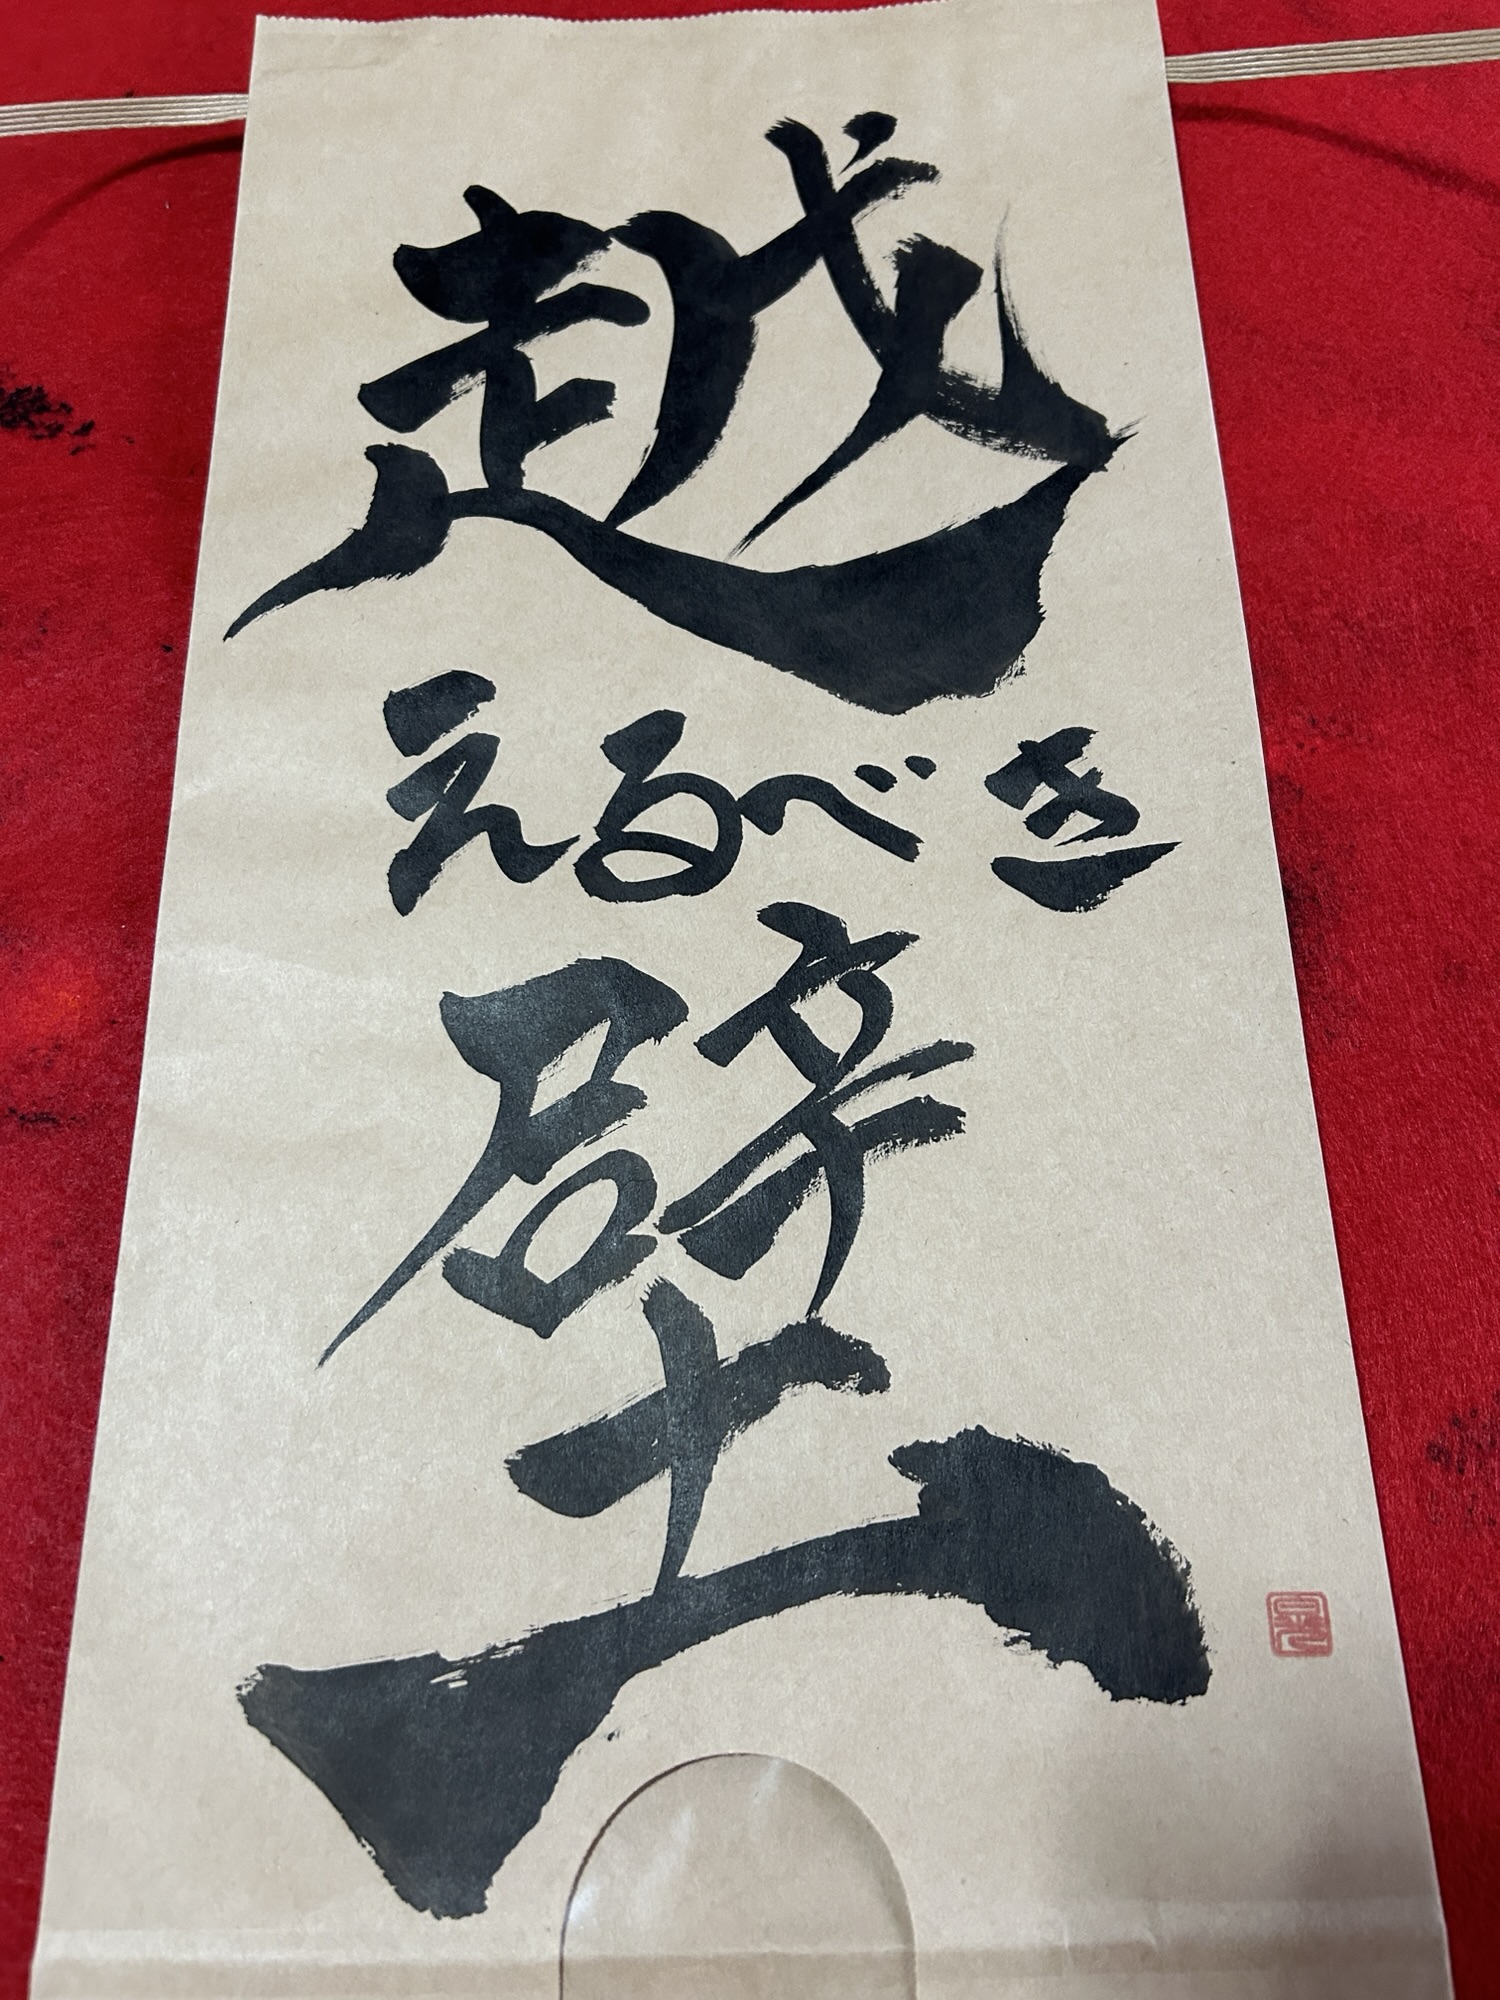 越
えるべき
壁